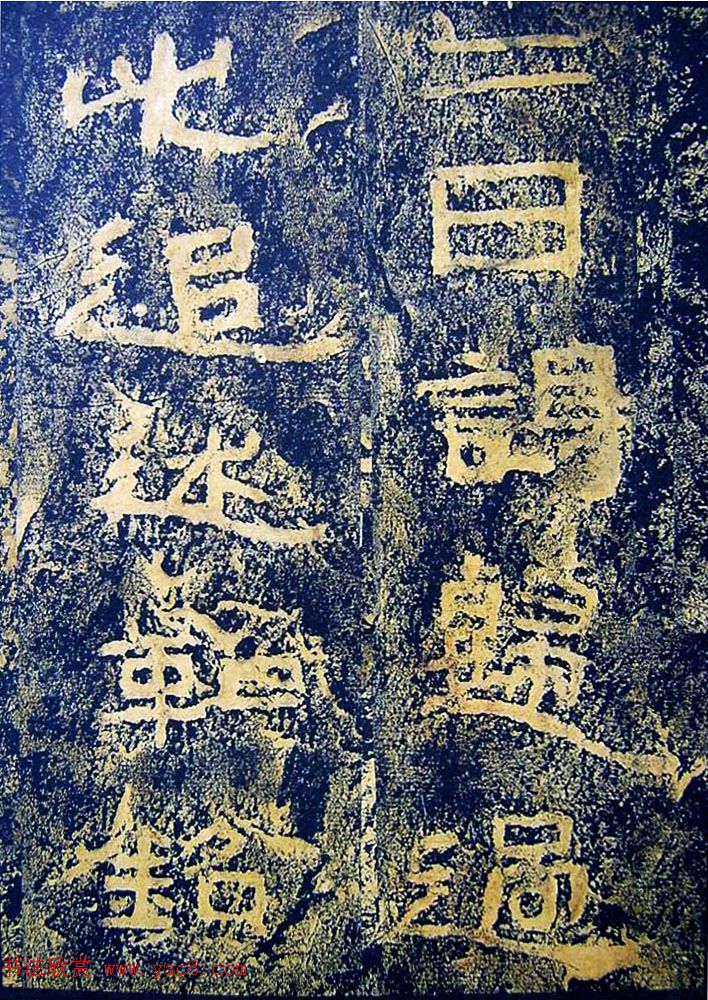 二日謁歸過
此追述勒銘
书法欣赏 www.yac8.com